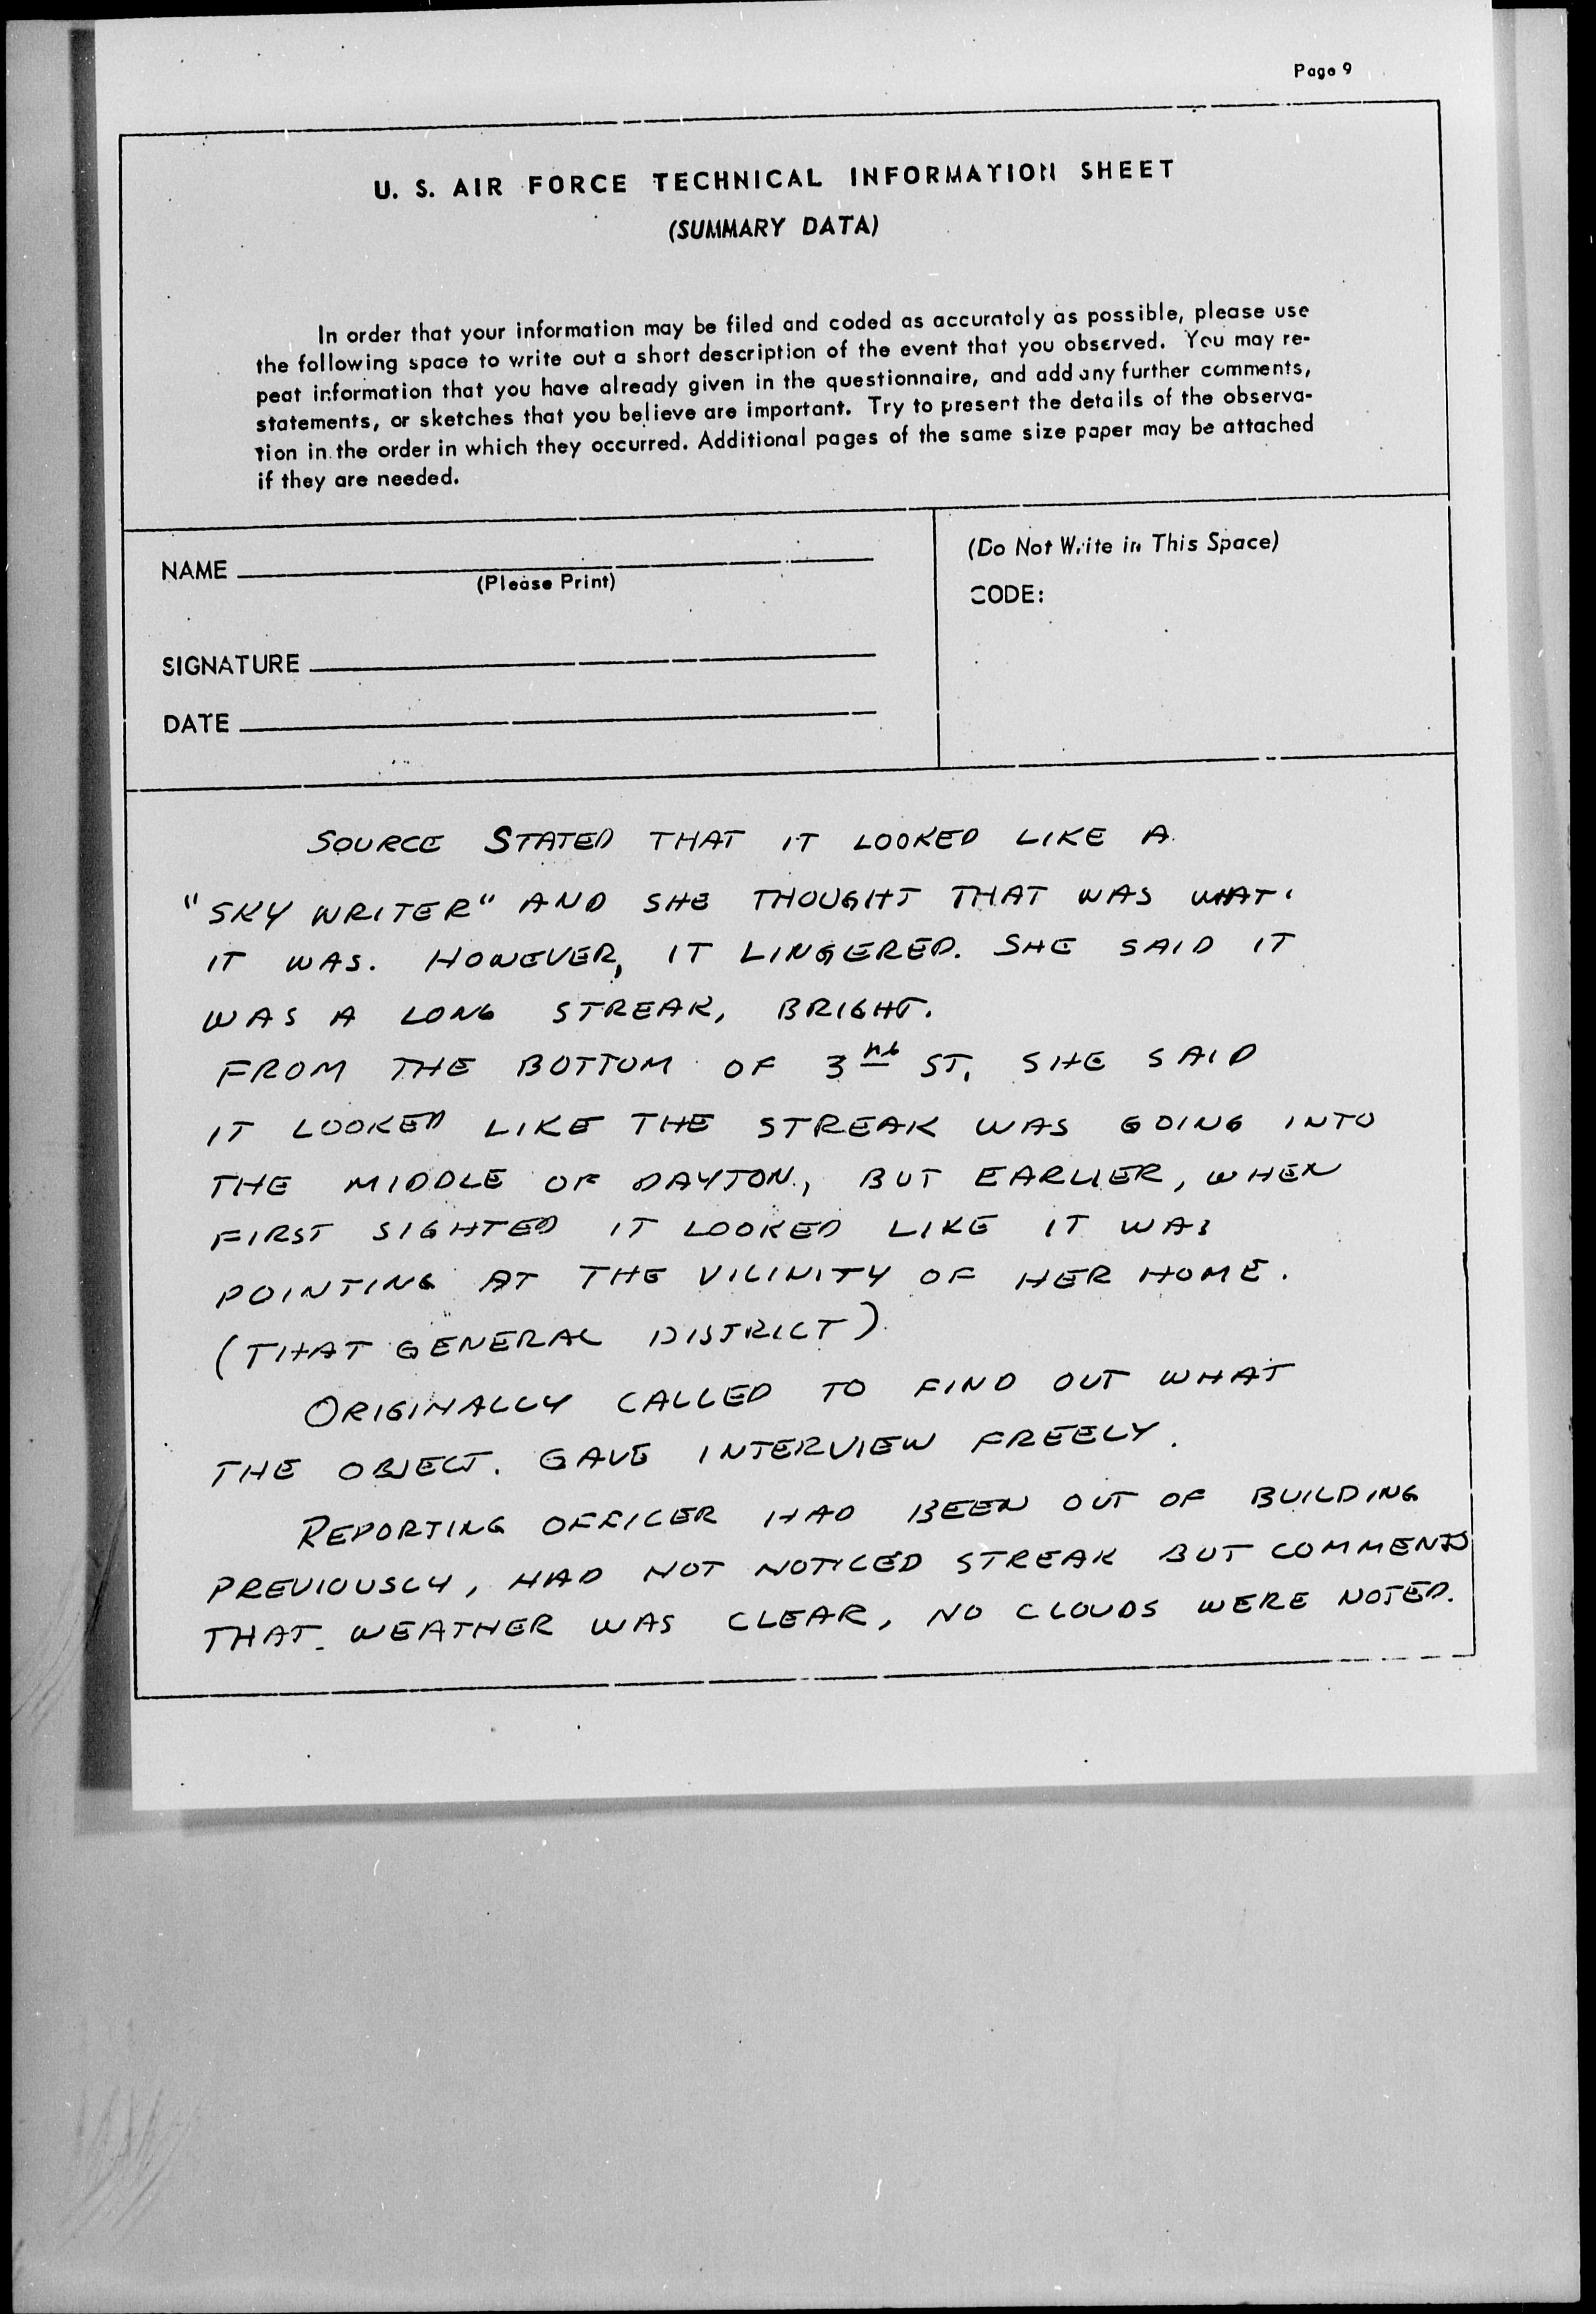 Page 9
U. S. AIR FORCE TECHNICAL INFORMATION SHEET
(SUMMARY DATA)
In order that your information may be filed and coded as accurately as possible, please use
the following space to write out a short description of the event that you observed. You may re-
peat information that you have already given in the questionnaire, and add any further comments,
statements, or sketches that you believe are important. Try to present the details of the observa-
tion in the order in which they occurred. Additional pages of the same size paper may be attached
if they are needed.
NAME
(Please Print)
SIGNATURE
DATE
(Do Not Write in This Space)
CODE:
SOURCE STATED THAT IT LOOKED LIKE A
"SKY WRITER" AND SHE THOUGHT THAT WAS WHAT
IT WAS. HOWEVER, IT LINGERED. SHE SAID IT
WAS A LONG STREAK, BRIGHT.
FROM THE BOTTOM OF 3 ST. SHE SAID
IT LOOKED LIKE THE STREAK WAS GOING INTO
THE MIDDLE OF DAYTON, BUT EARLIER, WHEN
FIRST SIGHTED IT LOOKED LIKE IT WAS
POINTING AT THE VICINITY OF HER HOME.
(THAT GENERAL DISTRICT)
ORIGINALLY CALLED TO FIND OUT WHAT
THE OBJECT. GAVE INTERVIEW FREELY.
REPORTING OFFICER HAD BEEN OUT OF BUILDING
PREVIOUSLY, HAD NOT NOTICED STREAK BUT COMMENTS
THAT WEATHER WAS CLEAR, NO CLOUDS WERE NOTED.